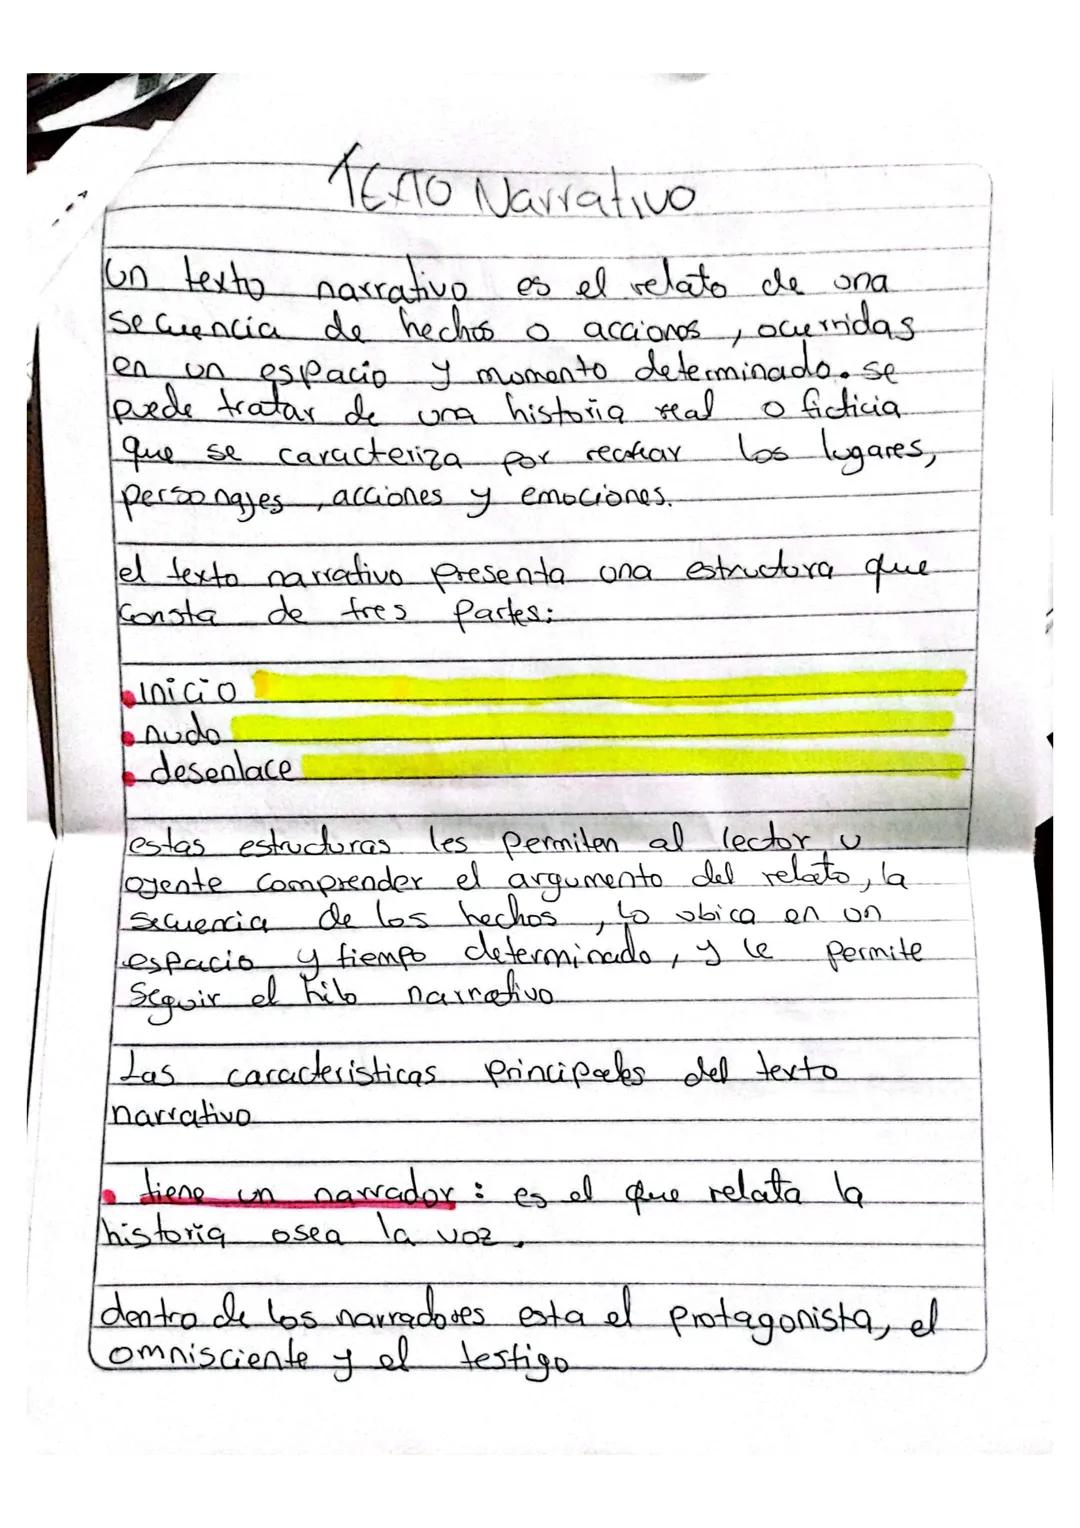 TEXTO Narrativo
Un texto narrativo es el relato de una
secuencia de hechos o acciones, ocurridas
en un espacio y momento determinado. se
puede tratar de una historia real o ficticia
que se caracteriza por recrear los lugares,
personajes, acciones y emociones.
el texto narrativo presenta una estructura que
consta de tres partes:
• inicio
• nudo
• desenlace
estas estructuras les permiten al lector u
oyente comprender el argumento del relato, la
secuencia de los hechos, lo ubica en un
espacio y tiempo determinado, y le permite
seguir el hilo narrativo
Las caracteristicas principales del texto
narrativo
• tiene un narrador: es el que relata la
historia osea la voz.
dentro de los narradores esta el protagonista, el
omnisciente y el testigo